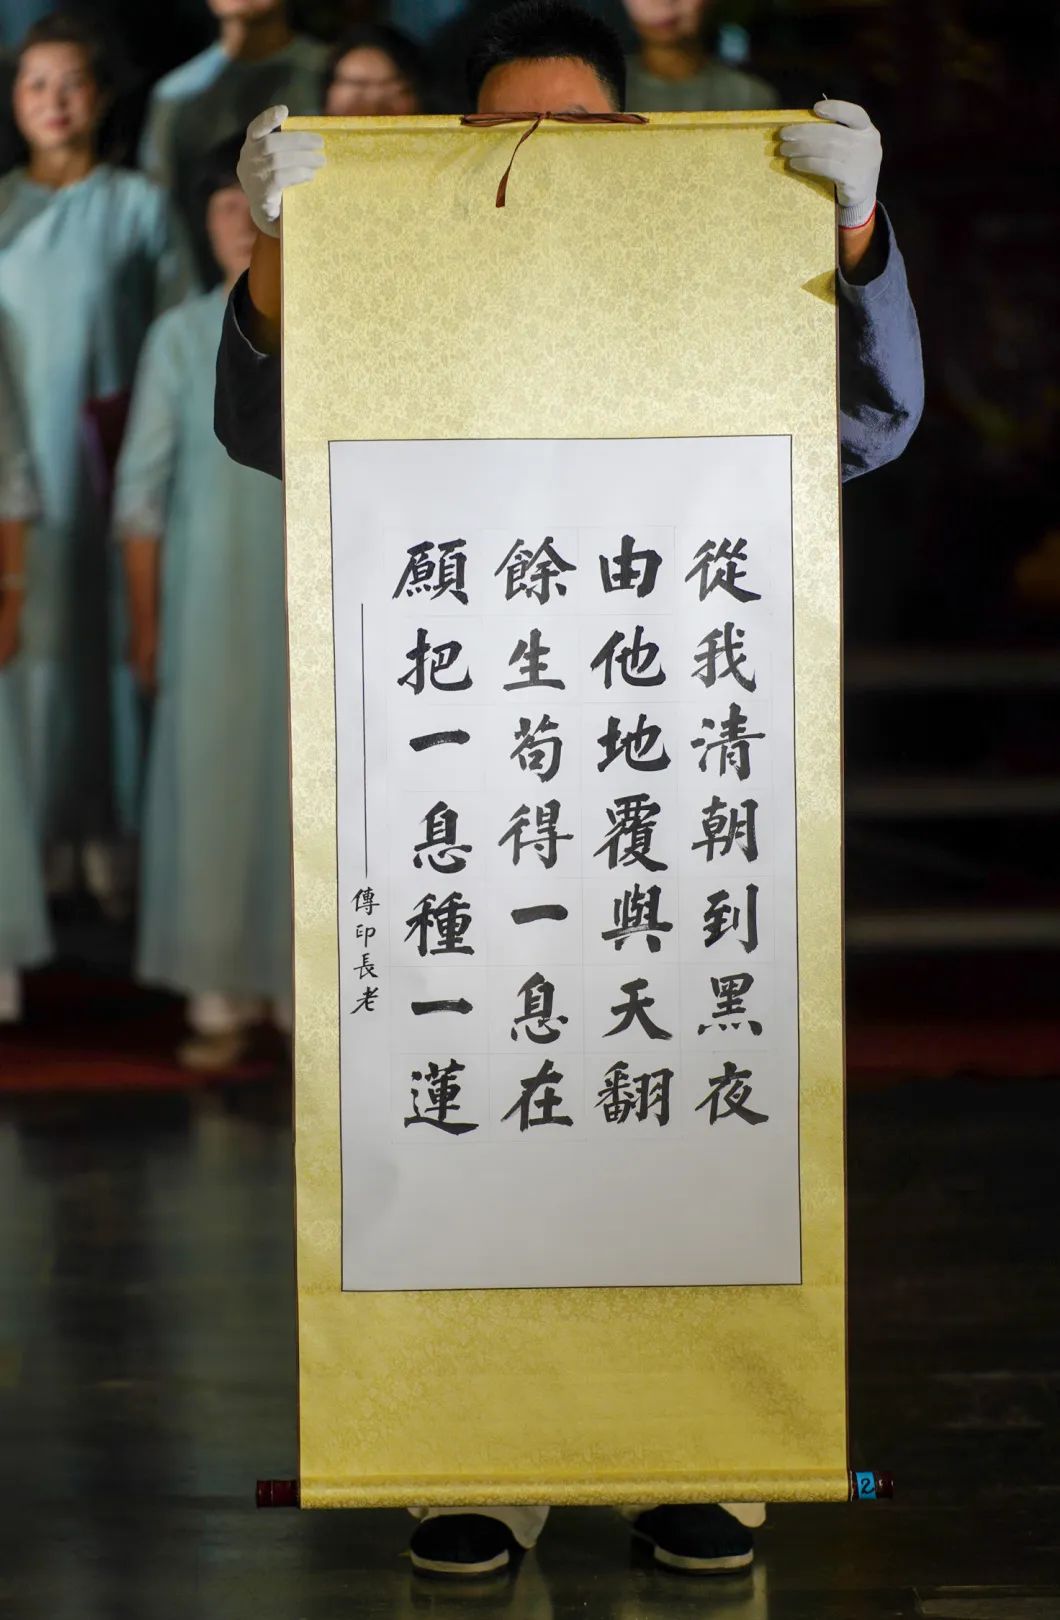 從我清朝到黑夜
由他地覆與天翻
餘生苟得一息在
願把一息種一蓮
傳印長老
2